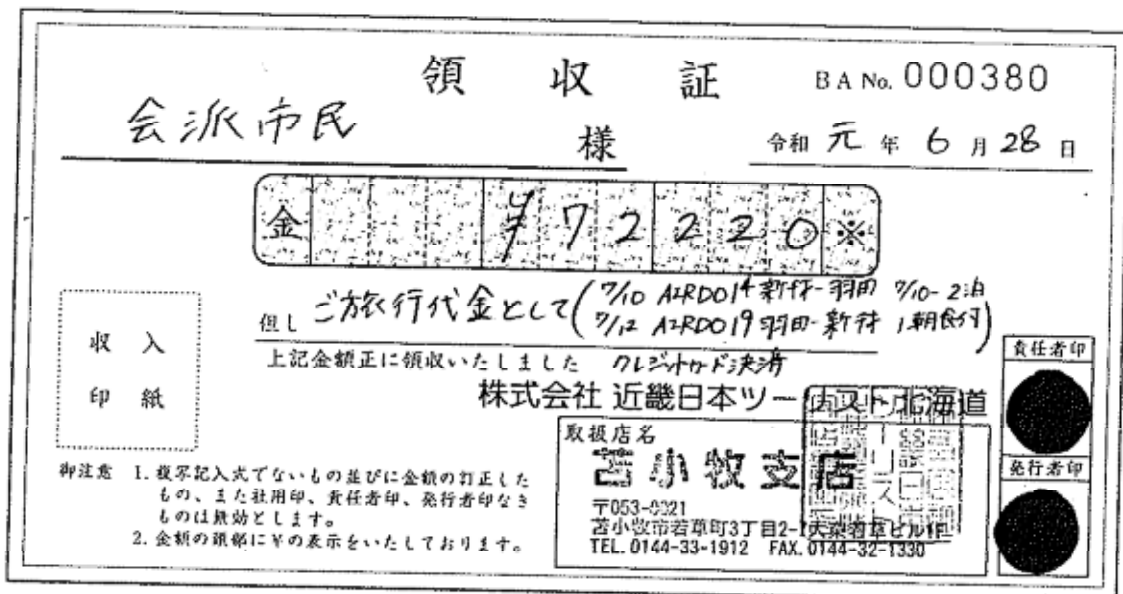 領収証 BA No. 000380
会派市民 様 令和 元 年 6 月 28 日
金 ¥72220※
但し ご旅行代金として
(7/10 AIRDO14 新千-羽田 7/10-2泊
7/12 AIRDO19 羽田-新千 1朝食付)
上記金額正に領収いたしました クレジットカード決済
株式会社 近畿日本ツーリスト北海道
収入
印紙
取扱店名
苫小牧支店
〒053-0021
苫小牧市若草町3丁目2-7大東若草ビル1F
TEL. 0144-33-1912 FAX. 0144-32-1330
責任者印
発行者印
御注意 1. 複写記入式でないもの並びに金額の訂正した
もの、また社用印、責任者印、発行者印なき
ものは無効とします。
2. 金額の頭部に¥の表示をいたしております。